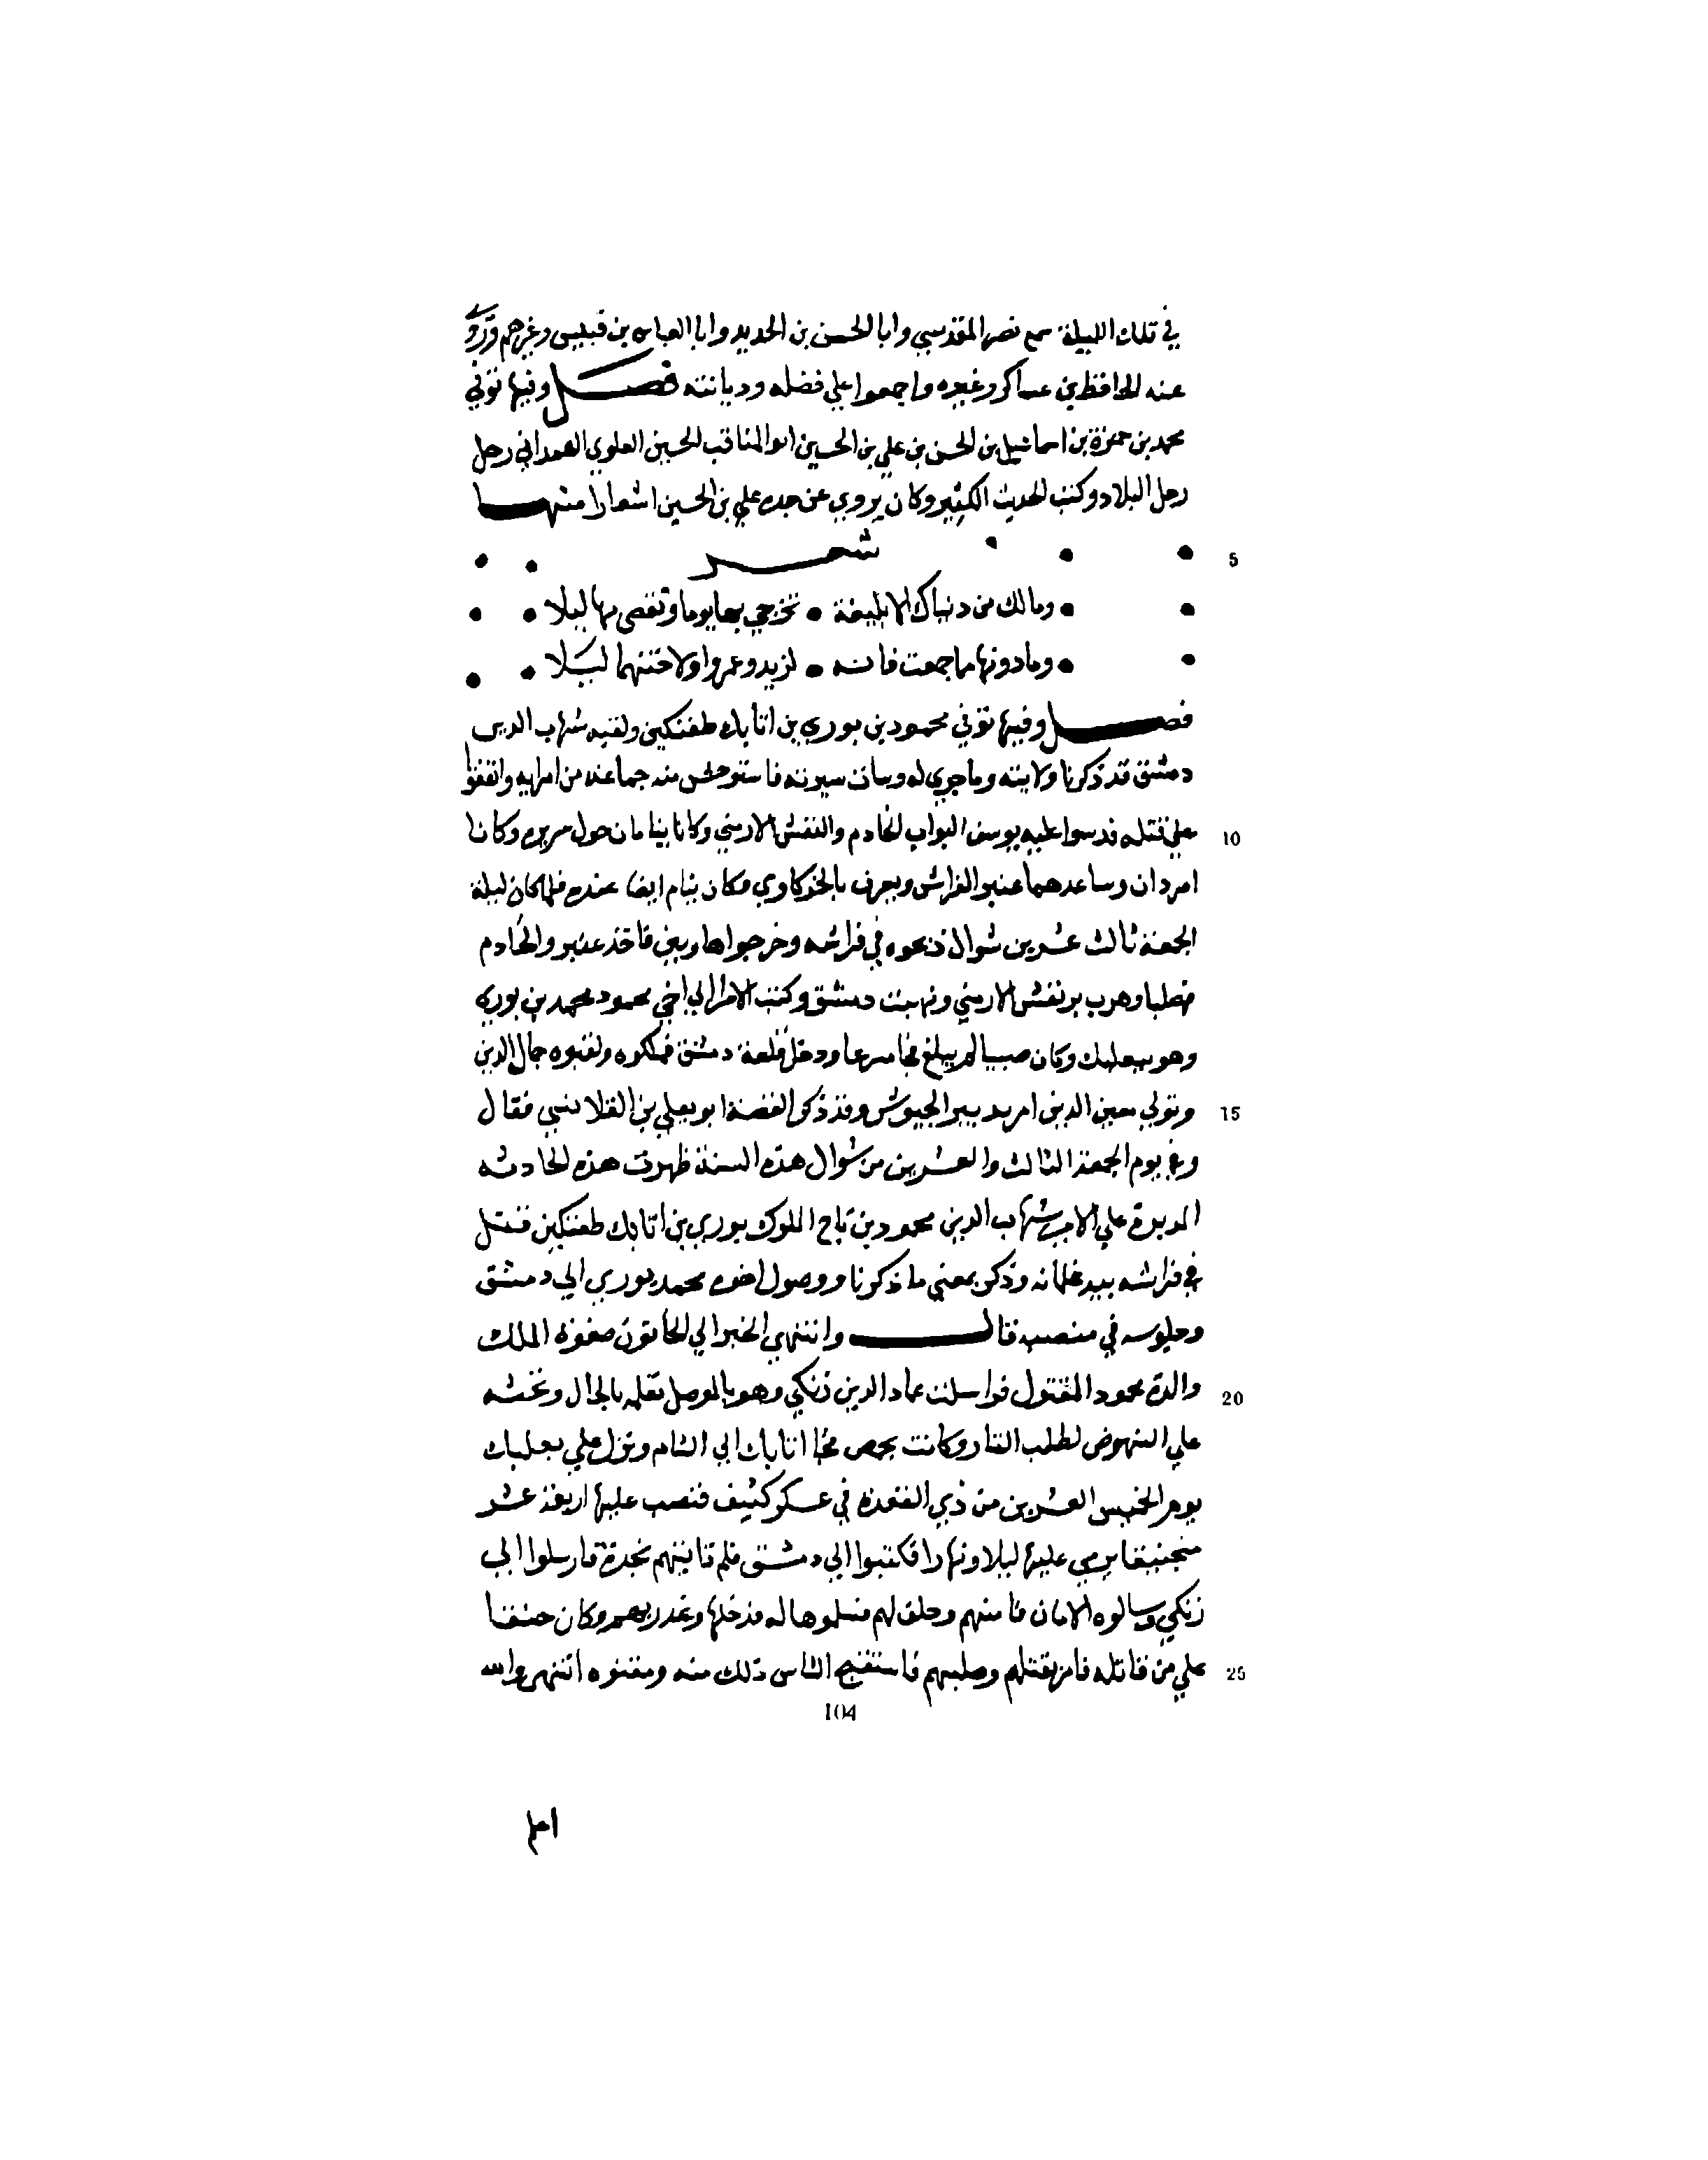 في تلك الليلة سمع نصر المقدسي وابا الحسن بن الحديد وابا العباس بن قبيس وغيرهم وروى
عنه الحافظ بن عساكر وغيره واجمعوا علي فضله وديانته فصل وفيها توفي
محمد بن حمزة بن اسماعيل بن الحسن بن علي بن الحسين ابو المناقب الحسين العلوي الهمداني رحل
رحل البلاد وكتب الحديث الكثير وكان يروي عن جده علي بن الحسين اشعارا منها
شعر 5
وما لك من دنياك الا بليغة تزجي بها يوما وتقضي بها ليلا
وما دونها مما جمعت فانه لزيد وعمروا ولاختهما ليلا
فصل وفيها توفي محمود بن بوري بن اتابك طغتكين ولقبه شهاب الدين
دمشق قد ذكرنا ولايته وما جري له وساءت سيرته فاستوحش منه جماعة من امرايه واتفقوا
علي قتله فدسوا عليه يوسف البواب الخادم والنفش الارمني وكانا يناما ن حول سريره وكانا 10
امردان وساعدهما عنبر الفراش ويعرف بالخركاوي وكان ينام ايضا عنده فلما كان ليلة
الجمعة ثالث عشرين شوال ذبحوه في فراشه وخرجوا هاربين فاخذ عنبر والخادم
فصلبا وهرب برنفش الارمني ونهبت دمشق وكتب الامرا الي اخي محمود محمد بن بوري
وهو ببعلبك وكان صبيا لم يبلغ فجا مسرعا ودخل قلعة دمشق فملكوه ولقبوه جمال الدين
وتولي معين الدين امر تدبير الجيوش وقد ذكر القصة ابو يعلي بن القلانسي فقال 15
وفي يوم الجمعة الثالث والعشرين من شوال هذه السنة ظهرت هذه الحادثه
المدبرة علي الامير شهاب الدين محمود بن تاج الملوك بوري بن اتابك طغتكين فقتل
في فراشه بيد غلمانه وذكر بمعني ما ذكرنا ووصول اخوه محمد بوري الي دمشق
وجلوسه في منصبه قال وانتهي الخبر الي الخاتون صفوة الملك
والدة محمود المقتول فراسلت عماد الدين زنكي وهو بالموصل تعلمه بالحال وتحثه 20
علي النهوض لطلب الثار وكانت بحمص فجا اتابك الي الشام ونزل علي بعلبك
يوم الخميس العشرين من ذي القعدة في عسكر كثيف فنصب عليها اربعة عشر
منجنيقا يرمي عليها ليلا ونهارا فكتبوا الي دمشق فلم تاتيهم نجدة فارسلوا الي
زنكي وسالوه الامان فامنهم وحلف لهم فسلموها له فدخلها وغدر بهم وكان حنقا
علي من قاتله فامر بقتلهم وصلبهم فاستقبح الناس ذلك منه ومقتوه انتهي والله 25
104
اعلم